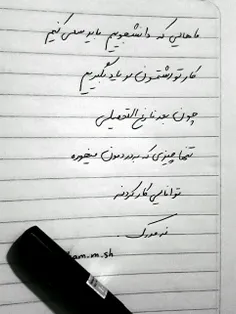 ماهایی که دانشجوییم باید سعی کنیم
کار تو رشتمون رو یاد بگیریم
چون بعد فارغ التحصیلی
تنها چیزی که بدردمون میخوره
توانایی کار کردنه
نه مدرک.
am.m.sh